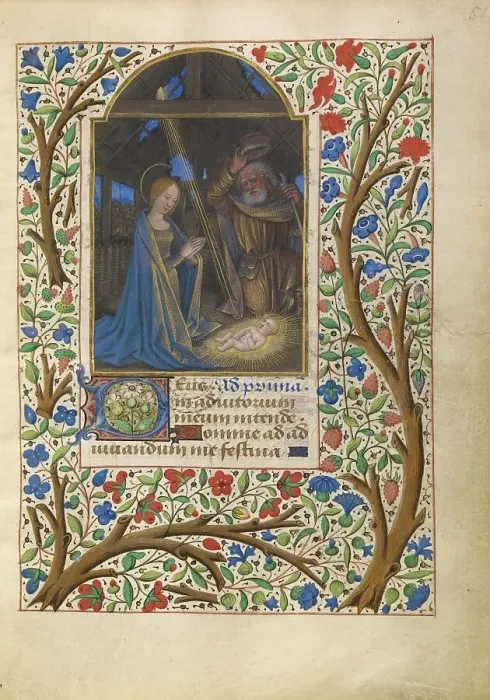 Deus. Ad prima.
in adiutorium
meum intende.
Domine ad ad
iuuandum me festina